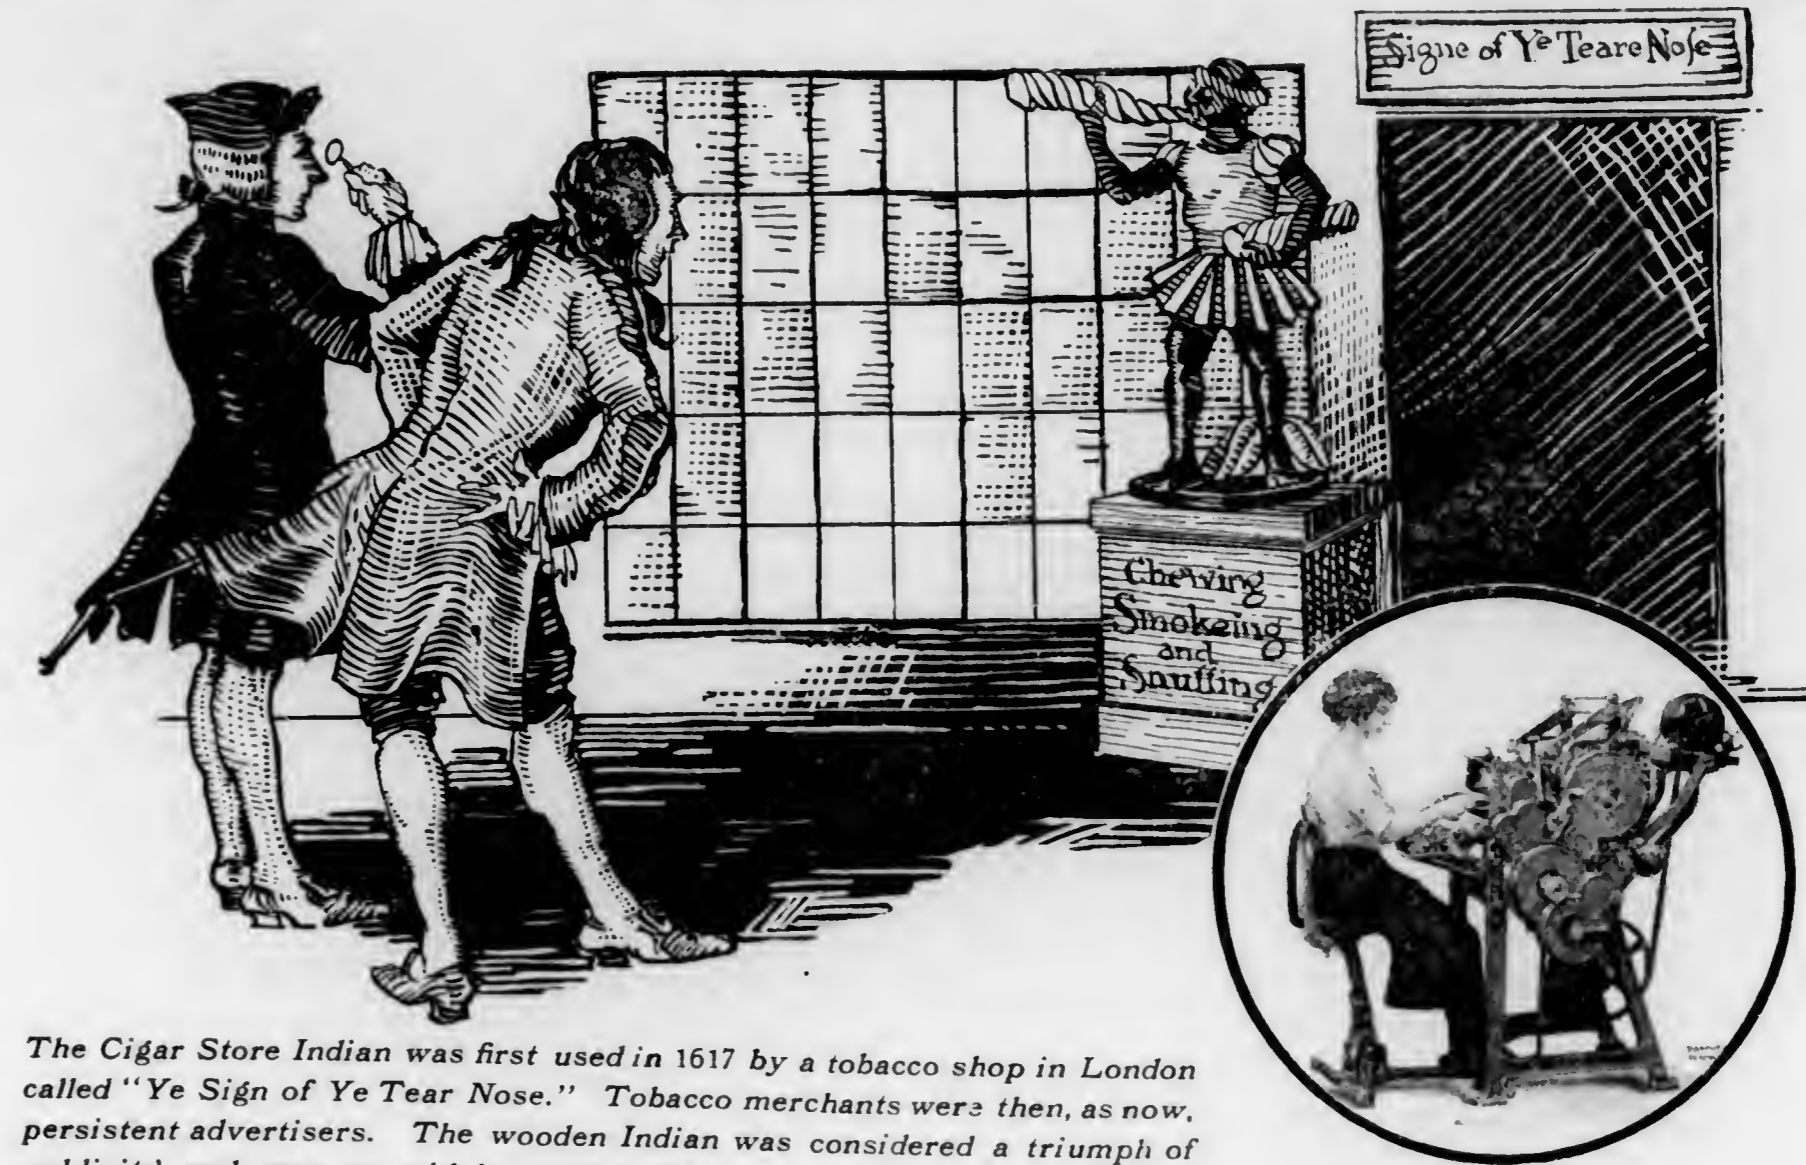 Signe of Ye Teare Nose
Chewing
Smokeing
and
Snuffing
The Cigar Store Indian was first used in 1617 by a tobacco shop in London
called "Ye Sign of Ye Tear Nose." Tobacco merchants were then, as now,
persistent advertisers. The wooden Indian was considered a triumph of